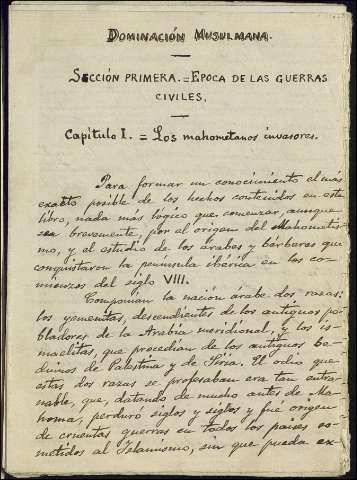 DOMINACIÓN MUSULMANA.
SECCIÓN PRIMERA.=EPOCA DE LAS GUERRAS
CIVILES.
Capítulo I. = Los mahometanos invasores.
Para formar un conocimiento el más
exacto posible de los hechos contenidos en este
libro, nada más lógico que comenzar, aunque
sea brevemente, por el origen del Mahometis-
mo, y el estudio de los árabes y bárbaros que
conquistaron la península ibérica en los co-
mienzos del siglo VIII.
Componían la nación árabe dos razas:
los yemenitas, descendientes de los antiguos po-
bladores de la Arabia meridional, y los is-
maelitas, que procedían de los antiguos be-
duinos de Palestina y de Siria. El odio que
estas dos razas se profesaban era tan entra-
ñable, que, datando de mucho antes de Ma-
homa, perduró siglos y siglos y fué origen
de cruentas guerras en todos los países so-
metidos al Islamismo, sin que pueda ex-